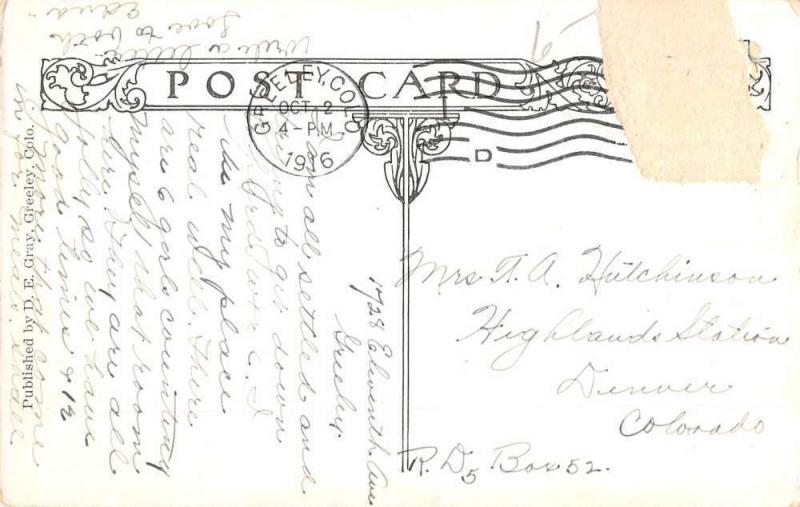 POST CARD
GREELEY, COLO.
OCT 2
4-PM
1916
D
Published by D. E. Gray, Greeley, Colo.
1728 Eleventh Ave
Greeley.
I am all settled and
trying to get down
to hard work. I
like my place
real well. There
are 6 girls counting
myself that room
here. They are all
jolly so we have
good times &
must come
in
Write a letter
Love to both
Edna.
Mrs. T. A. Hutchinson
Highlands Station
Denver
Colorado
R. D. 5 Box 52.